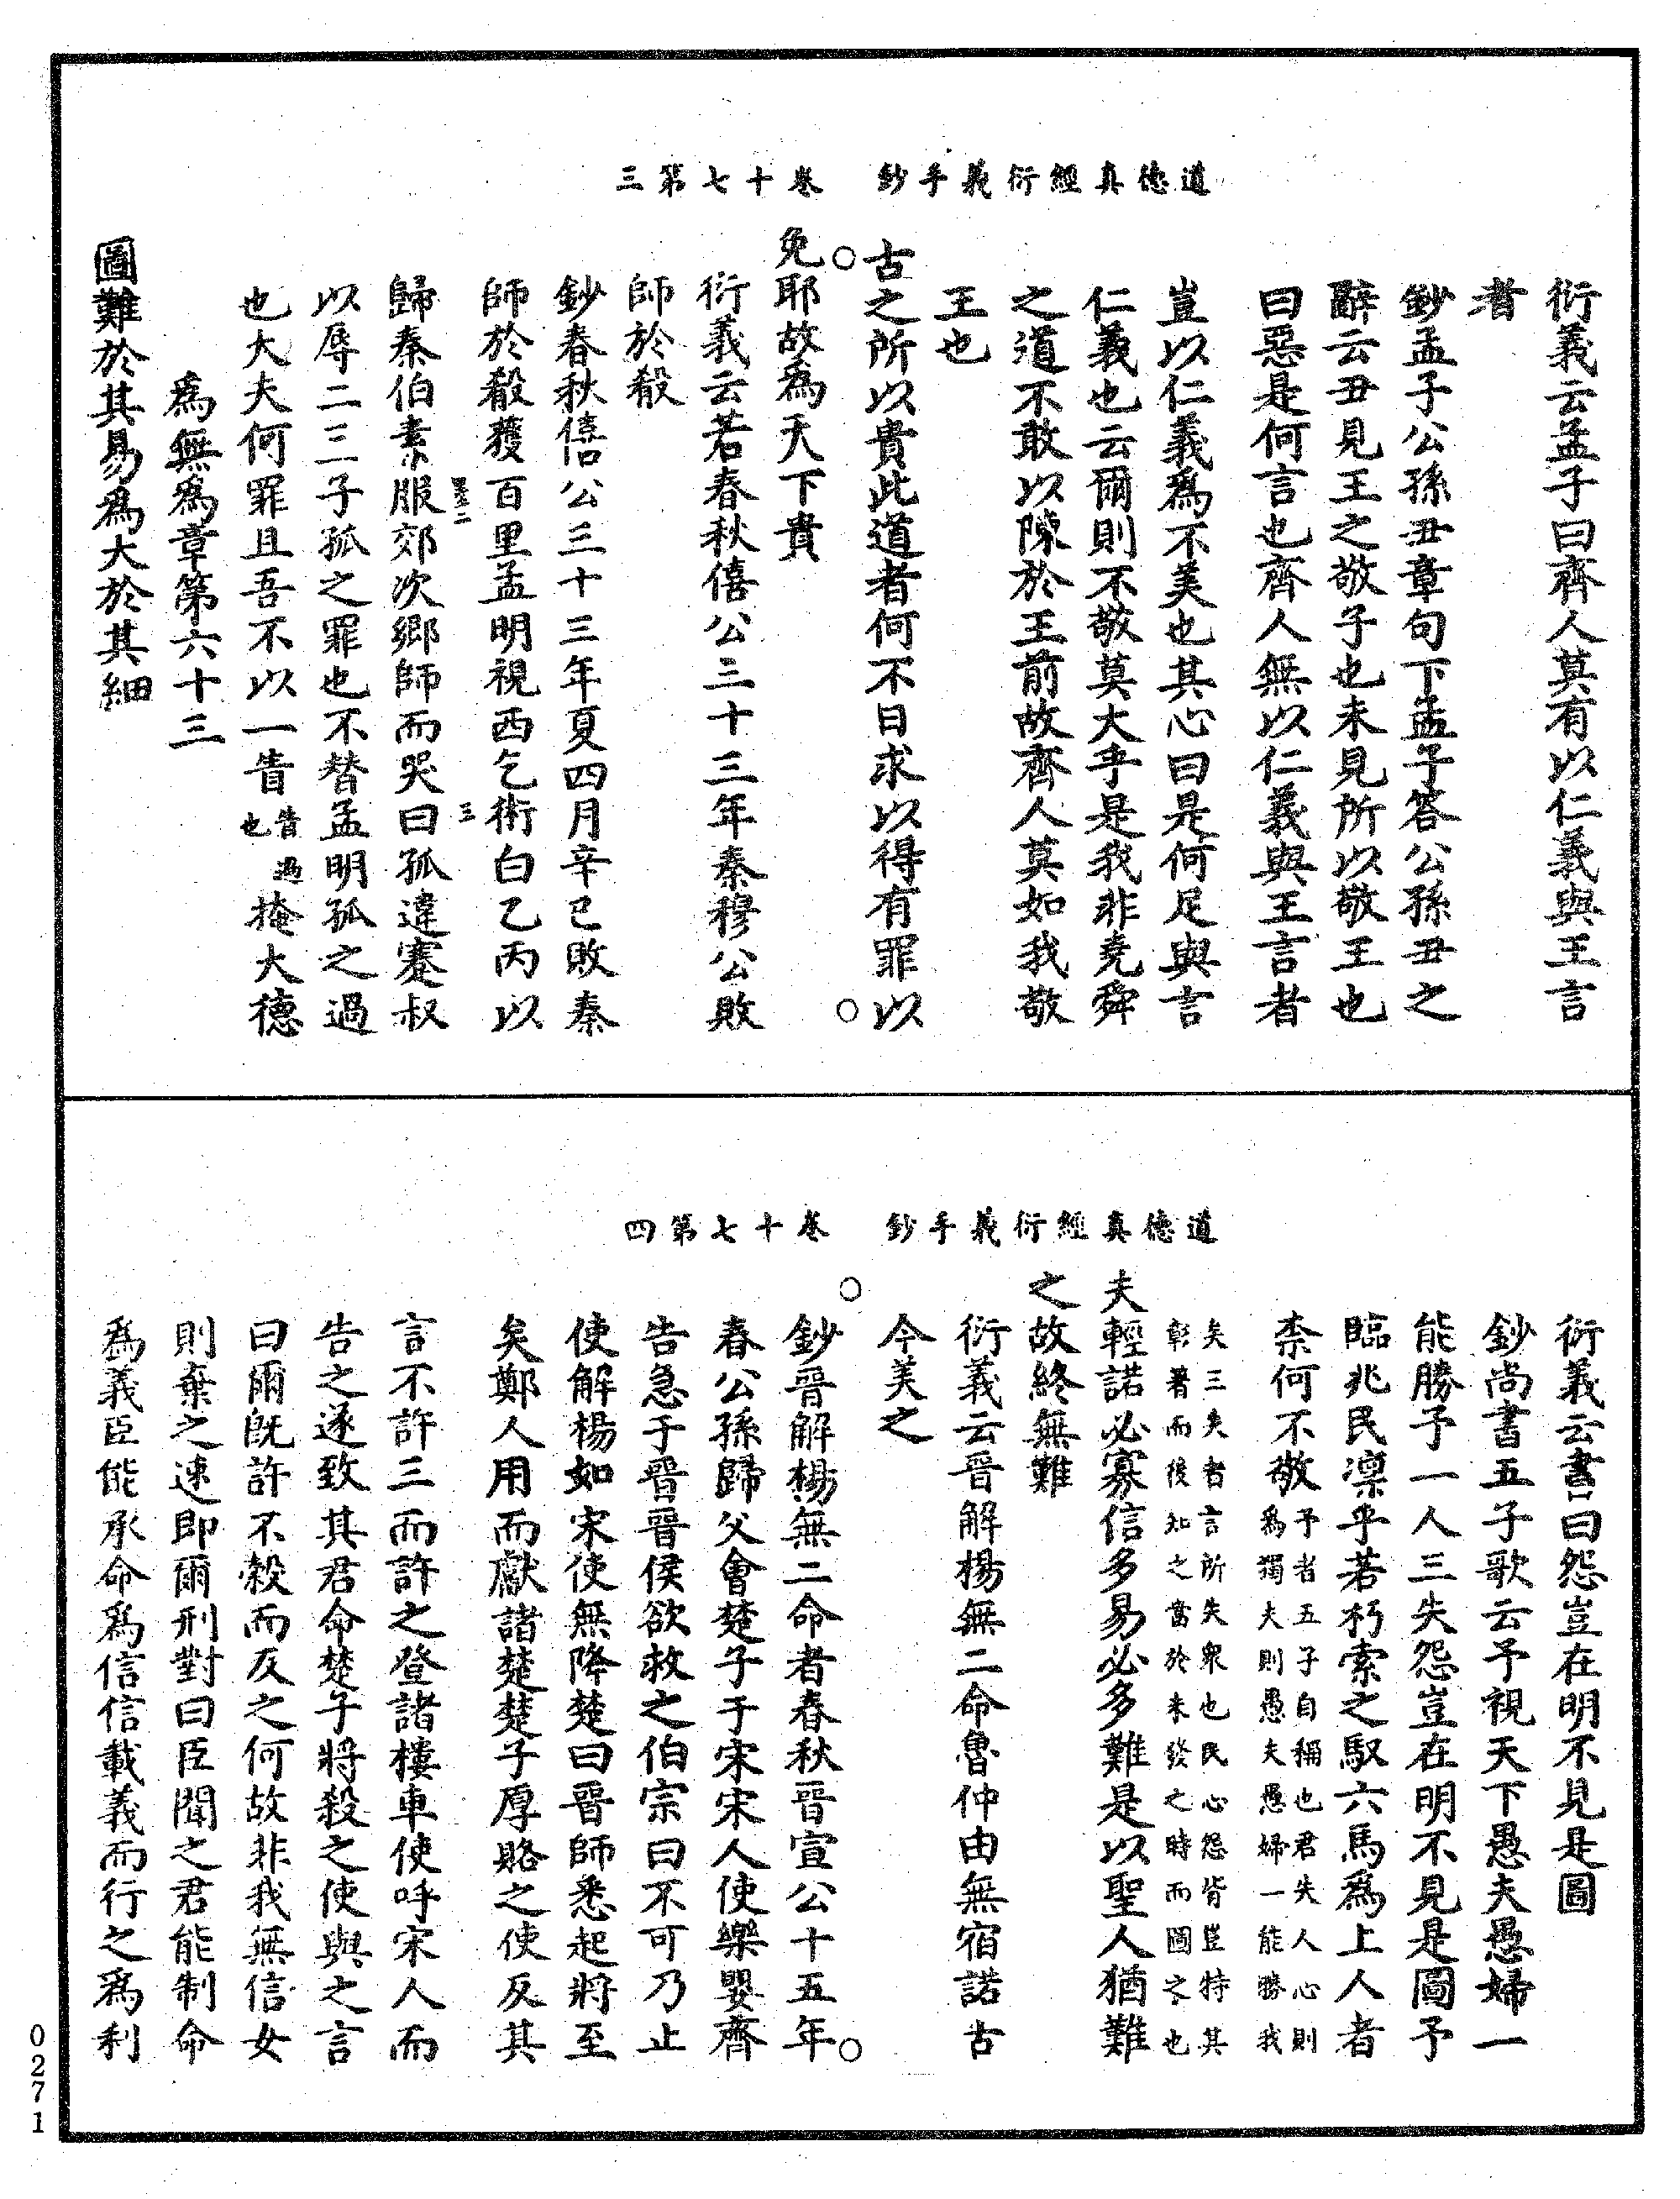 道德真經衍義手鈔 卷十七第三
衍義云孟子曰齊人莫有以仁義與王言
者
鈔孟子公孫丑章句下孟子答公孫丑之
辭云丑見王之敬子也未見所以敬王也
曰惡是何言也齊人無以仁義與王言者
豈以仁義為不美也其心曰是何足與言
仁義也云爾則不敬莫大乎是我非堯舜
之道不敢以陳於王前故齊人莫如我敬
王也
古之所以貴此道者何不日求以得有罪以
免耶故為天下貴
衍義云若春秋僖公三十三年秦穆公敗
師於殽
鈔春秋僖公三十三年夏四月辛巳敗秦
師於殽獲百里孟明視西乞術白乙丙以
歸秦伯素服郊次鄉師而哭曰孤違蹇叔
以辱二三子孤之罪也不替孟明孤之過
也大夫何罪且吾不以一眚眚過也掩大德
為無為章第六十三
圖難於其易為大於其細
道德真經衍義手鈔 卷十七第四
衍義云書曰怨豈在明不見是圖
鈔尚書五子歌云予視天下愚夫愚婦一
能勝予一人三失怨豈在明不見是圖予
臨兆民凜乎若朽索之馭六馬為上人者
柰何不敬予者五子自稱也君失人心則為獨夫則愚夫愚婦一能勝我
矣三失者言所失衆也民心怨背豈特其彰著而後知之當於未發之時而圖之也
夫輕諾必寡信多易必多難是以聖人猶難
之故終無難
衍義云晉解楊無二命魯仲由無宿諾古
今美之
鈔晉解楊無二命者春秋晉宣公十五年
春公孫歸父會楚子于宋宋人使樂嬰齊
告急于晉晉侯欲救之伯宗曰不可乃止
使解楊如宋使無降楚曰晉師悉起將至
矣鄭人用而獻諸楚楚子厚賂之使反其
言不許三而許之登諸樓車使呼宋人而
告之遂致其君命楚子將殺之使與之言
曰爾既許不穀而反之何故非我無信女
則棄之速即爾刑對曰臣聞之君能制命
為義臣能承命為信信載義而行之為利
0271